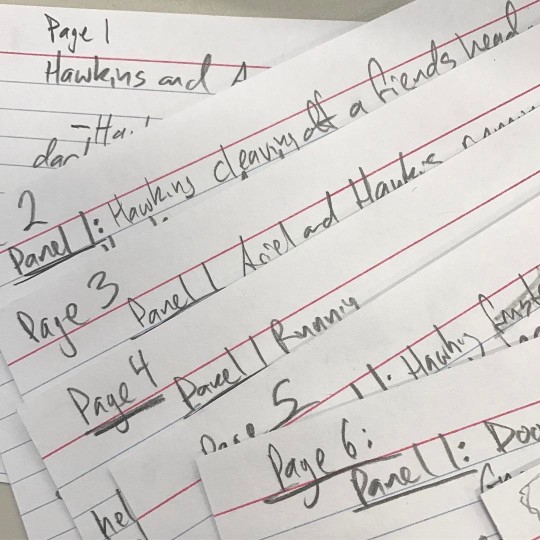 Page 1
Hawkins and A
-Ha
dar
2
Panel 1: Hawkins cleaving off a fiends head
Page 3
Panel 1 Ariel and Hawkins
Page 4
Panel 1 Running
Page 5
Page 6:
Panel 1: Doo
hel